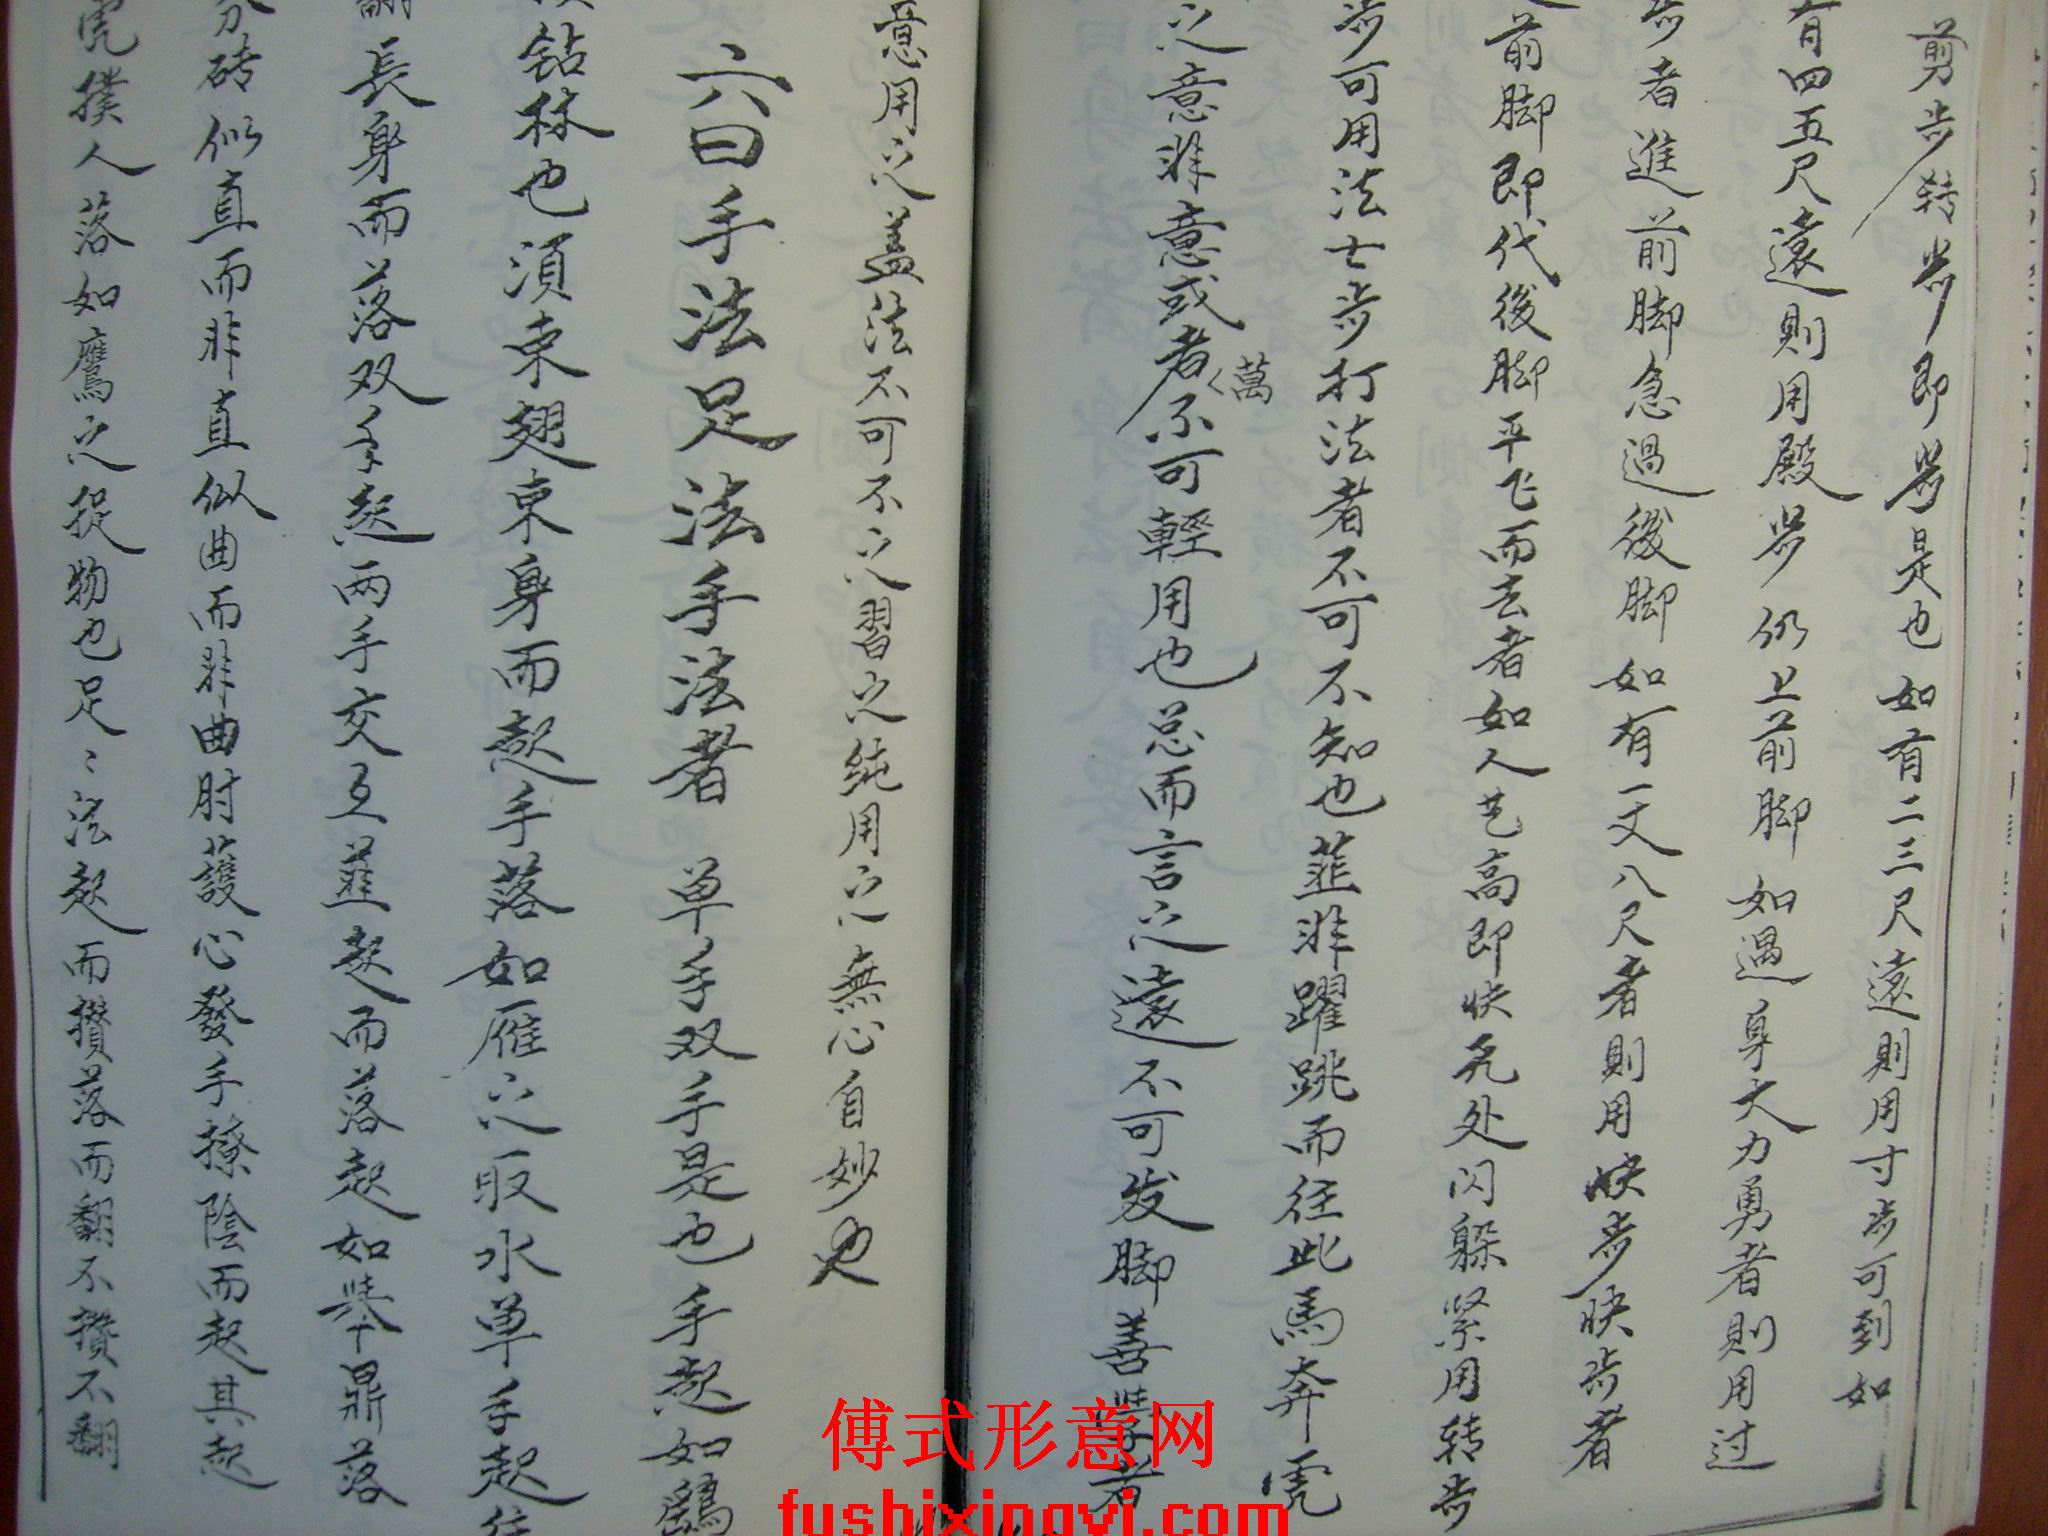 剪步转步即步是也如有二三尺遠則用寸步可到如
有四五尺遠則用殿步仍上前脚如遇身大力勇者則用过
步者進前脚急過後脚如有一丈八尺者則用快步快步者
前脚即代後脚平飞而去者如人艺高即快死处闪躲紧用转步
步可用法士步打法者不可不知也韮非躍跳而往此馬奔虎
之意非意或者不可輕用也总而言之遠不可发脚善學者
萬く
意用之盖法不可不之習之純用之無心自妙也
六曰手法足法手法者 单手双手是也手起如鷂
钻林也須束翅束身而起手落如雁之取水单手起往
翻長身而落双手起两手交互韮起而落起如举鼎落
分砖似直而非直似曲而非曲肘護心發手撩陰而起其起
虎撲人落如鷹之捉物也足〻法起而攒落而翻不攒不翻
傅式形意网
fushixingyi.com